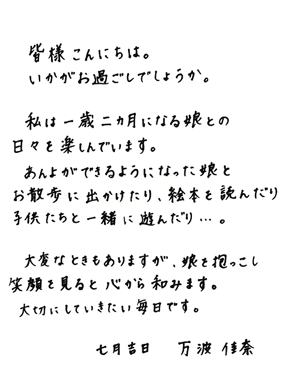 皆様こんにちは。
いかがお過ごしでしょうか。
私は一歳二カ月になる娘との
日々を楽しんでいます。
あんよができるようになった娘と
お散歩に出かけたり、絵本を読んだり
子供たちと一緒に遊んだり…。
大変なときもありますが、娘を抱っこし
笑顔を見ると心から和みます。
大切にしていきたい毎日です。
七月吉日 万波佳奈